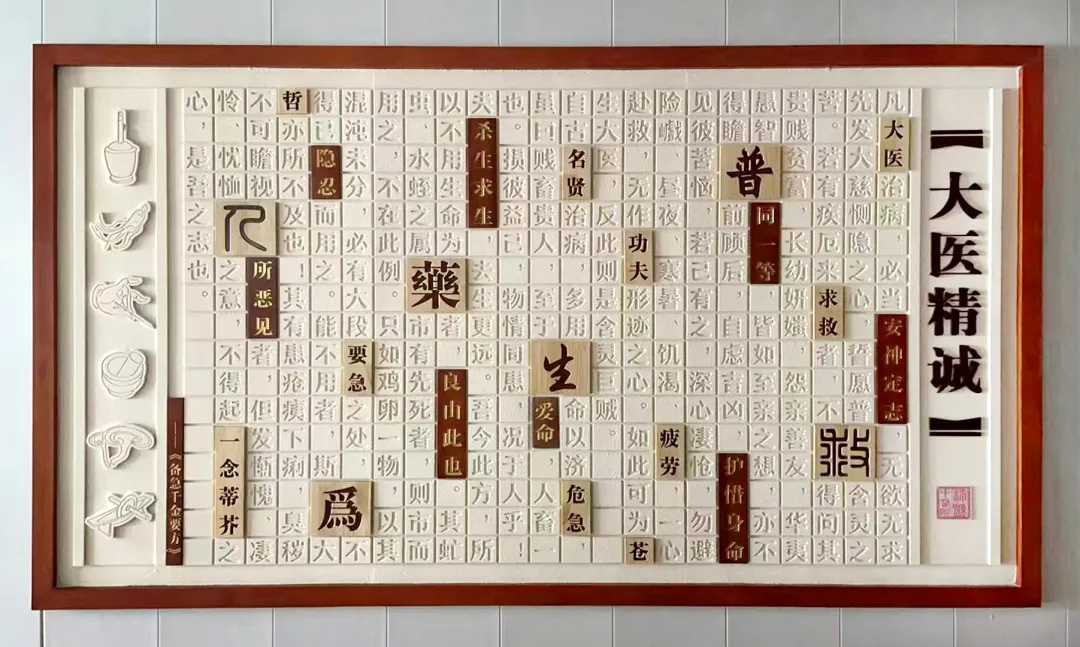 【大医精诚】
凡大医治病,必当安神定志,无欲无求
先发大慈恻隐之心,誓愿普救含灵之
苦。若有疾厄来求救者,不得问其
贵贱贫富,长幼妍媸,怨亲善友,华夷
愚智,普同一等,皆如至亲之想,亦不
得瞻前顾后,自虑吉凶,护惜身命
见彼苦恼,若己有之,深心凄怆,勿避
险巇、昼夜、寒暑、饥渴、疲劳,一心
赴救,无作功夫形迹之心。如此可为苍
生大医,反此则是含灵巨贼。
自古名贤治病,多用生命以济危急,
虽曰贱畜贵人,至于爱命,人畜一
也。损彼益己,物情同患,况于人乎!
夫杀生求生,去生更远。吾今此方,所
以不用生命为藥者,良由此也。其虻
虫、水蛭之属,市有先死者,则市而
用之,不在此例。只如鸡卵一物,以其
混沌未分,必有大段要急之处,不
得已隐忍而用之。能不用者,斯爲大
哲亦所不及也!其有患疮痍下痢,臭秽
不可瞻视,人所恶见者,但发惭愧、凄
怜、忧恤之意,不得起一念蒂芥之
心,是吾之志也。
——《备急千金要方》